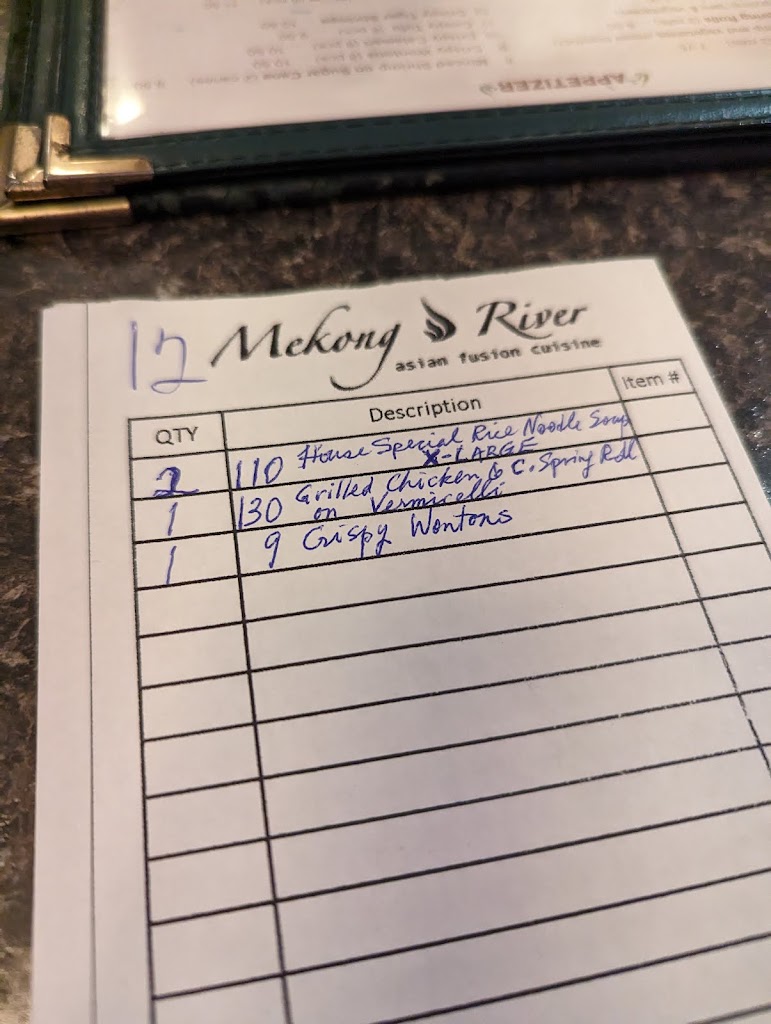 APPETIZER
12 Mekong River
asian fusion cuisine
QTY Description Item #
2 110 House Special Rice Noodle Soup
X-LARGE
1 130 Grilled Chicken & C. Spring Roll
on Vermicelli
1 9 Crispy Wontons